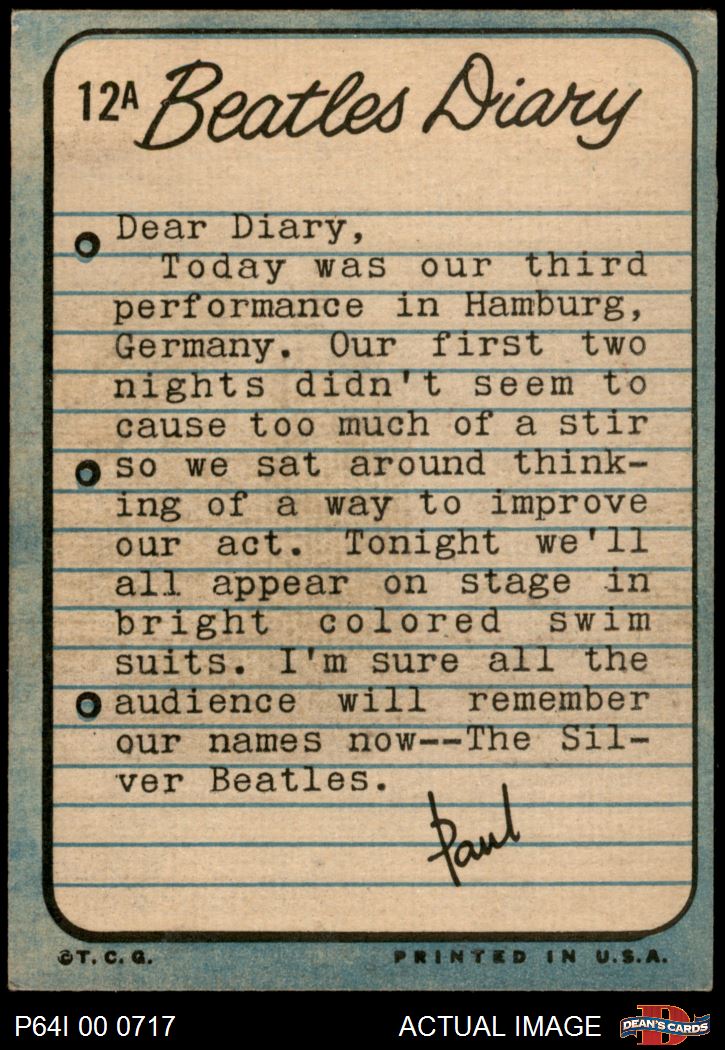 12A Beatles Diary
Dear Diary,
Today was our third
performance in Hamburg,
Germany. Our first two
nights didn't seem to
cause too much of a stir
so we sat around think-
ing of a way to improve
our act. Tonight we'll
all appear on stage in
bright colored swim
suits. I'm sure all the
audience will remember
our names now--The Sil-
ver Beatles.
Paul
©T.C.G. PRINTED IN U.S.A.
P64I 00 0717 ACTUAL IMAGE DEAN'S CARDS